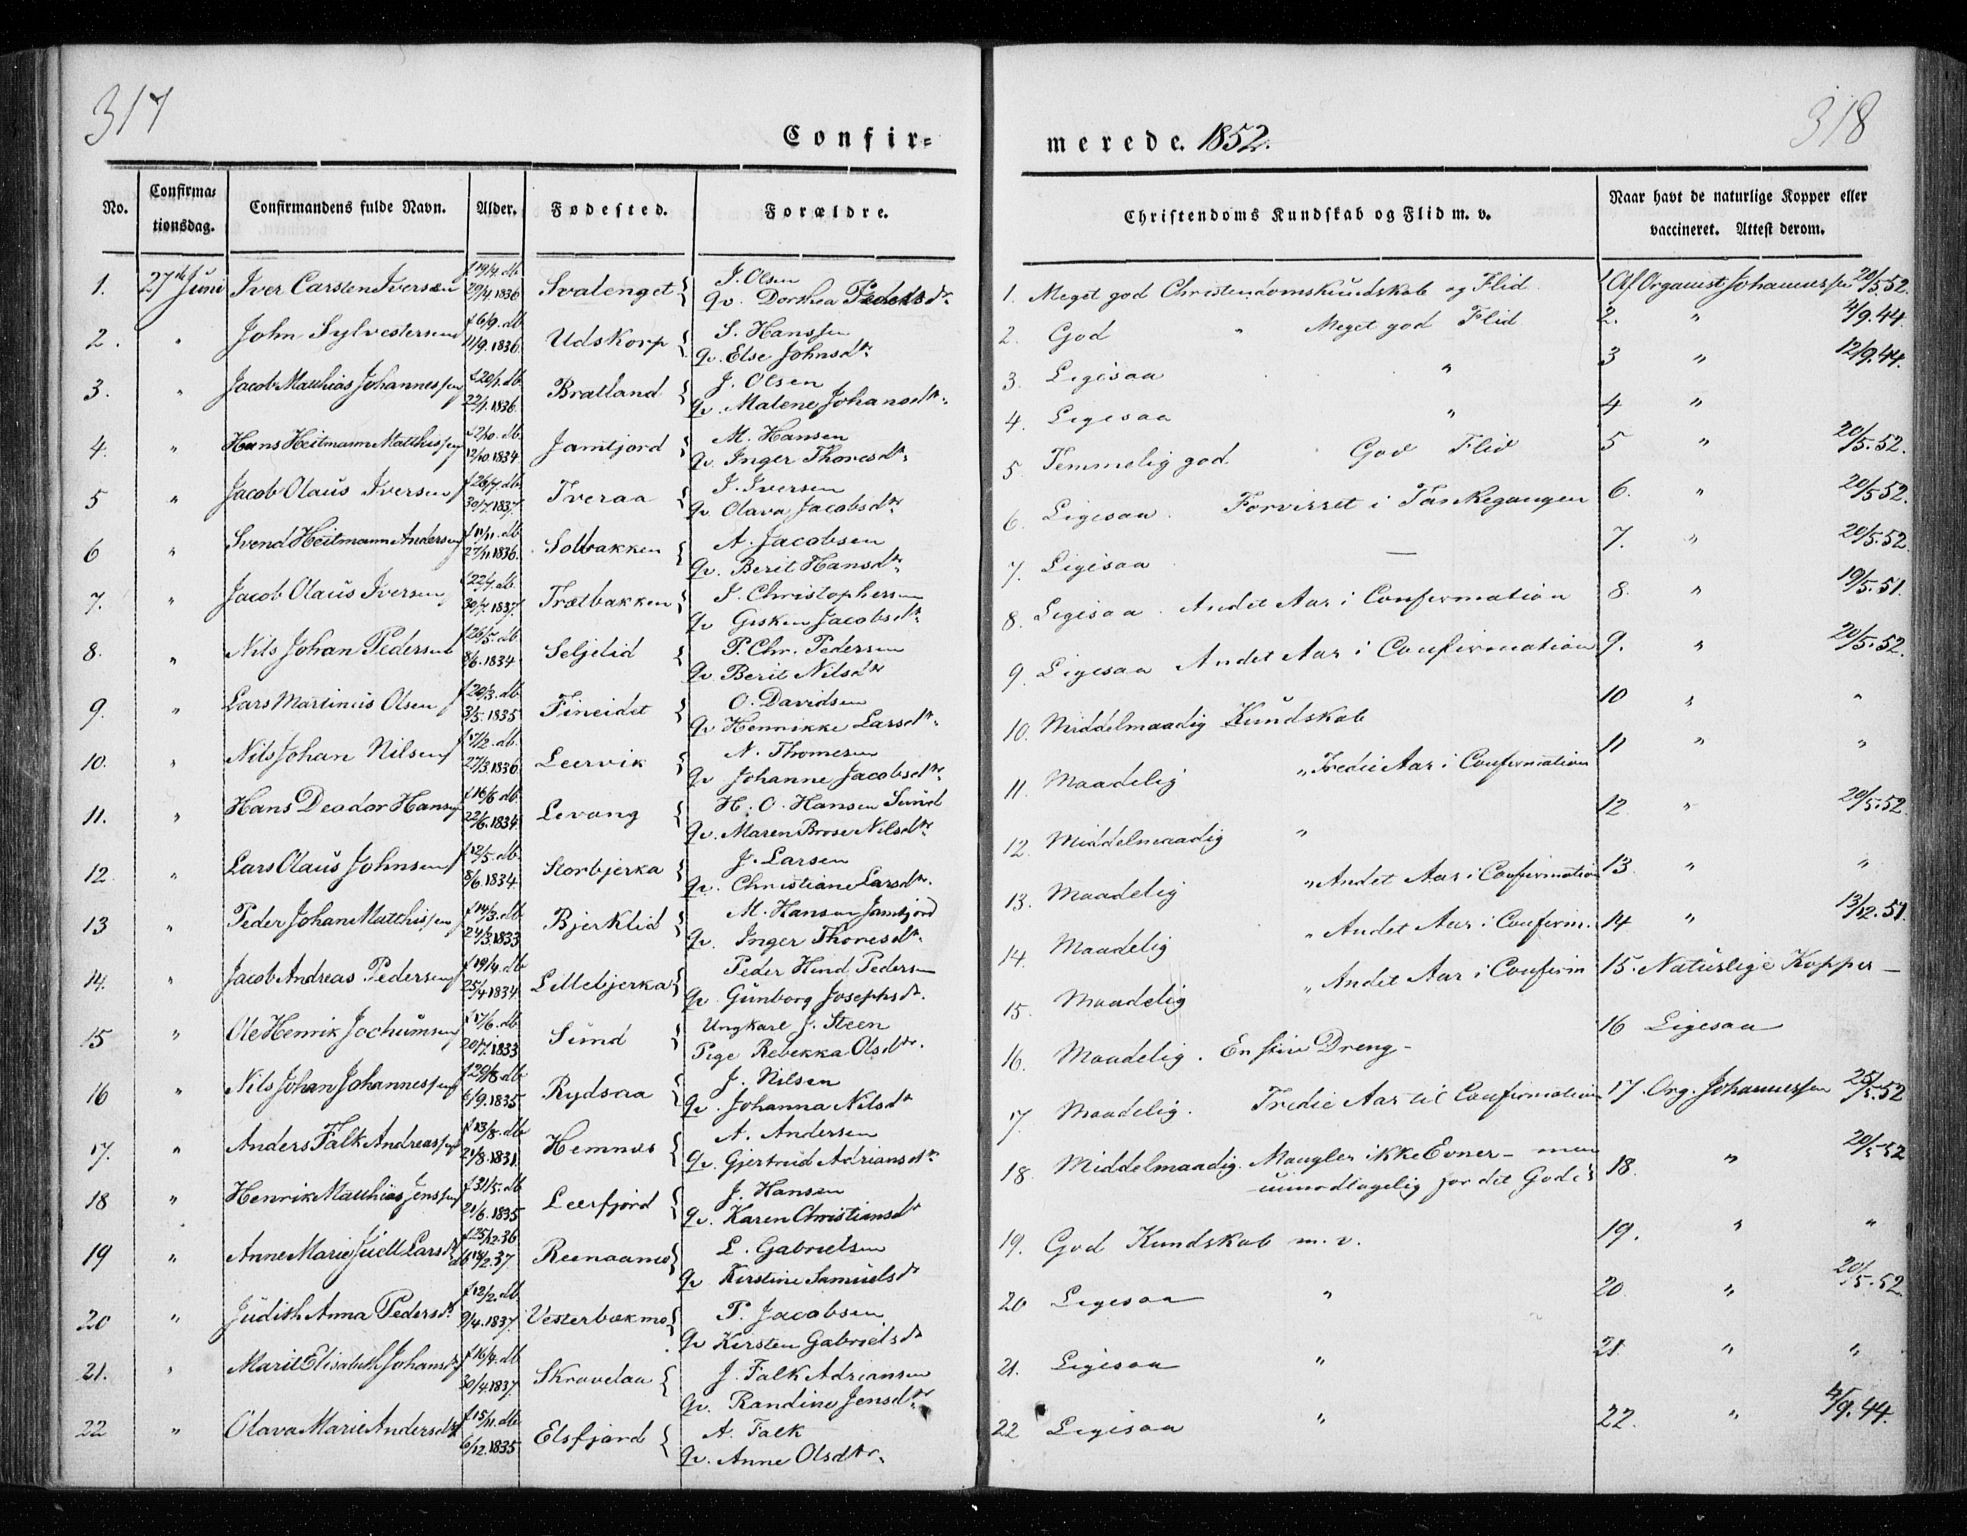 317
Confir-
No.
Confirma-
tionsdag.
Confirmandens fulde Navn.
Alder.
Fødested.
Forældre.
1. 27de Juni Iver Carsten Iversen f 19/4. db 20/4 1836 Svalenget { I. Olsen
Qv. Dorthea Pedersdr.
2. " John Sylvestersen f 6/9. db 11/9. 1836. Udskorp { S. Hanssen
Qv. Else Johnsdtr.
3. " Jacob Matthias Johannessen f 20/1. db 22/1. 1836. Bratland { J. Olsen
Qv. Malene Johansdtr.
4. " Hans Heitmann Matthissen f 2/10. db 12/10 1834 Jamtjord { M. Hansen
Qv. Inger Thoresdtr.
5 " Jacob Olaus Iversen f 26/7. db 30/7 1837. Tveraa { I. Iversen
Qv. Olava Jacobsdtr
6 " Svend Heitmann Andersen f 11/11. db 27/11 1836. Solbakken { A. Jacobsen
Qv. Berit Hansdtr.
7. " Jacob Olaus Iversen db 30/7. 1837. Trætbakken { I. Christophersen
Qv Gisken Jacobsdtr.
8. " Nils Johan Pedersen f 26/5. db 8/6. 1834 Seljelid { P. Chr. Pedersen
Qv. Berit Nilsdtr
9. " Lars Martinus Olsen f 20/3. db 3/5. 1835 Fineidet { O. Davidsen
Qv Hennikke Larsdtr.
10. " Nils Johan Nilsen db. 27/3. 1836 Leervik { N. Thomesen
Qv Johanne Jacobsdtr.
11. " Hans Deodor Hansen f 16/6 db 22/6. 1834. Levang { H. O. Hansen Sund
Qv. Maren Brose Nilsdtr
12 " Lars Olaus Johnsen f 12/5. db. 8/6. 1834. Storbjerka { J. Larsen
Qv. Christiane Larsdtr.
13 " Peder Johan Matthissen f 14/3. db 24/3. 1833 Bjerklid { M. Hansen Jamtjord
Qv. Inger Thoresdtr.
14. " Jacob Andreas Pedersen f 19/4. db 25/4 1834. Lillebjerka { Peder Hind Pedersen
Qv. Gunborg Josephsdr.
15 " Ole Henrik Jochumsen f 17/6. db 1833 Sund { Ungkarl J. Steen
Pige Rebekka Olsdtr.
16 " Nils Johan Johannessen f 29/8. db 6/9. 1835 Rydsaa { J. Nilsen
Qv. Johanna Nilsdtr
17. " Anders Falk Andreassen f 13/8. db 21/8. 1831. Hemnæs { A. Andersen
Qv. Gjertrud Adriansdtr
18 " Henrik Matthias Jenssen f 31/5. db 21/6. 1835 Leerfjord { J. Hansen
Qv. Karen Christiansdtr
19 " Anne Marie Juell Larsdtr f 25/12. 36 db 12/2. 37 { L. Gabrielsen
Qv Kirstine Samuelsdtr
20 " Judith Anna Pedersdtr. f 12/2. db 9/4. 1837. Vesterbækmo { P. Jacobsen
Qv Kirsten Gabrielsdr
21. " Marit Elisabeth Johansdtr f 16/4. db 30/4. 1837. Skravelaa { J. Falk Adriansen
Qv. Randine Jensdtr.
22 " Olava Marie Andersdtr f 15/11. db 6/12. 1835 Elsfjord { A. Falk
Qv. Anne Olsdtr.
318
merede. 1852.
Christendoms Kundskab og Flid m. v.
Naar havt de naturlige Kopper eller
vaccineret. Attest derom.
1. Meget god Christendomskundskab og Flid 1 Af Organist Johannessen 20/5. 52.
2. God " Meget god Flid 2. " 4/9. 44.
3. Ligesaa " 3 " 12/9. 44.
4. Ligesaa " 4 "
5 Temmelig god God Flid 5 " 20/5. 52.
6. Ligesaa. Forvirret i Tankegangen 6. " 20/5 52.
7. Ligesaa — 7. " 20/5. 52.
8. Ligesaa. Andet Aar i Confirmation 8. " 19/5. 51.
9 Ligesaa Andet Aar i Confirmation 9. " 20/5. 52.
10. Middelmaadig Kundskab 10 " "
11. Maadelig " Tredie Aar i Confirmation 11 " "
12. Middelmaadig " 12. " 20/5. 52.
13. Maadelig " Andet Aar i Confirmation 13. " "
14. Maadelig " Andet Aar i Confirm. 14 " 13/12. 51.
15. Maadelig " Andet Aar i Confirm 15. Naturlige Kopper —
16. Maadelig. En Dreng - 16 Ligesaa
17. Maadelig. Tredie Aar til Confirmation 17. Org. Johannessen 52
18. Middelmaadig. Mangler ikke Evner - men
umodtagelig for det Gode 18. " 20/5 52
19. God Kundskab m. v. 19. " "
20 Ligesaa " 20. " 20/5. 52.
21. Ligesaa " 21 " "
22 Ligesaa " 22. " 4/9. 44.